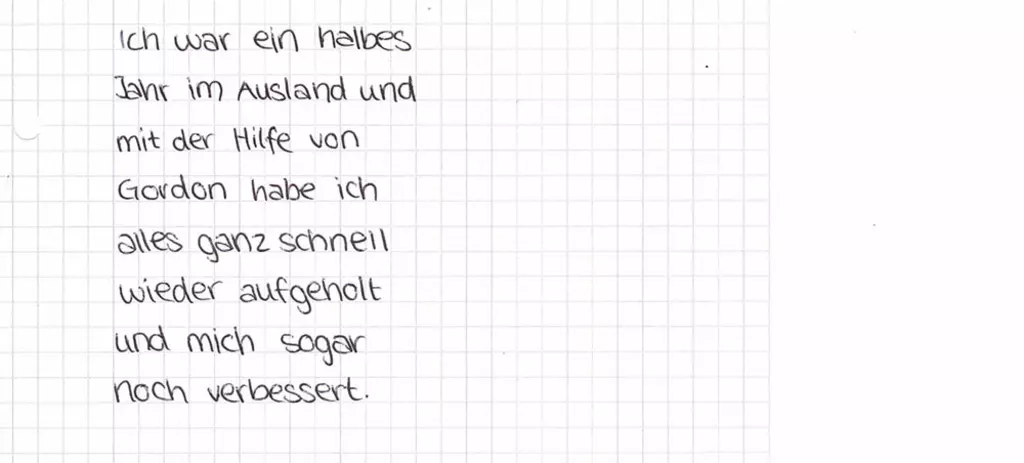 Ich war ein halbes
Jahr im Ausland und
mit der Hilfe von
Gordon habe ich
alles ganz schnell
wieder aufgeholt
und mich sogar
noch verbessert.